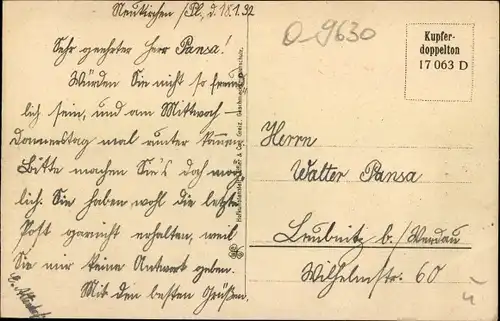 Neukirchen /Pl., d. 18.1.32
Sehr geehrter Herr Pansa!
Würden Sie nicht so freund
lich sein, und am Mittwoch –
Donnerstag mal runter kommen
Bitte machen Sie's doch mög
lich. Sie haben wohl die letzte
Post garnicht erhalten, weil
Sie mir keine Antwort geben.
Mit den besten Grüßen
O-9630
Kupfer-
doppelton
17 063 D
Herrn
Walter Pansa
Leubnitz b./Werdau
Wilhelmstr. 60